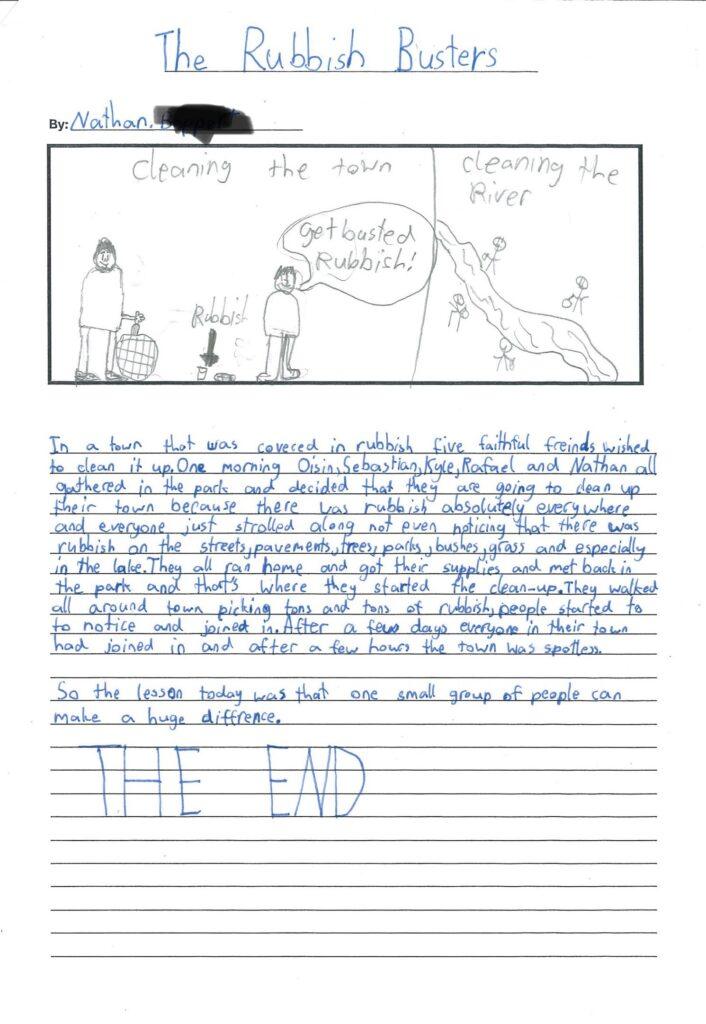 The Rubbish Busters
By: Nathan.
cleaning the town
cleaning the
River
get busted
Rubbish!
Rubbish
In a town that was covered in rubbish five faithful freinds wished
to clean it up. One morning Oisin, Sebastian, Kyle, Rafael and Nathan all
gathered in the park and decided that they are going to clean up
their town because there was rubbish absolutely everywhere
and everyone just strolled along not even noticing that there was
rubbish on the streets, pavements, trees, parks, bushes, grass and especially
in the lake. They all ran home and got their supplies and met back in
the park and that's where they started the clean-up. They walked
all around town picking tons and tons of rubbish, people started to
to notice and joined in. After a few days everyone in their town
had joined in and after a few hours the town was spotless.
So the lesson today was that one small group of people can
make a huge diffrence.
THE END